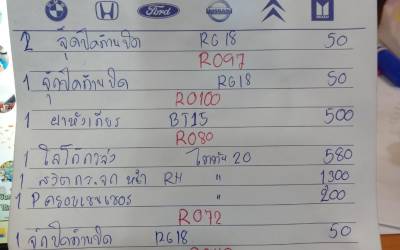 Ford NISSAN ISUZU
2 จุ๊ปปิดก้านปัด RG18 50
RO97
1 จุ๊ปปิดก้านปัด RG18 50
RO100
1 ฝาหัวเกียร BT15 500
RO80
1 โลโก้กระจัง ไททัน 20 580
1 สวิตกระจก หน้า RH " 1300
1 Pครอบเซนเซอร " 200
RO72
1 จุกปิดก้านปัด RG18 50